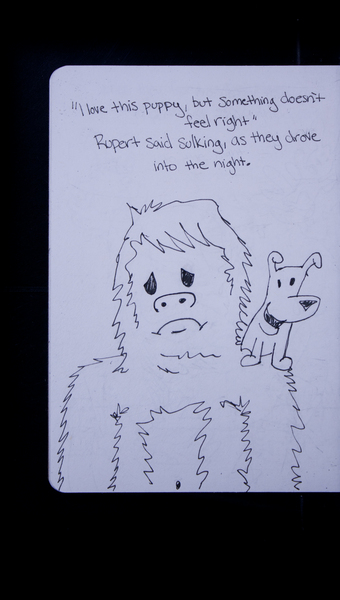 "I love this puppy, but something doesn't
feel right"
Rupert said sulking, as they drove
into the night.